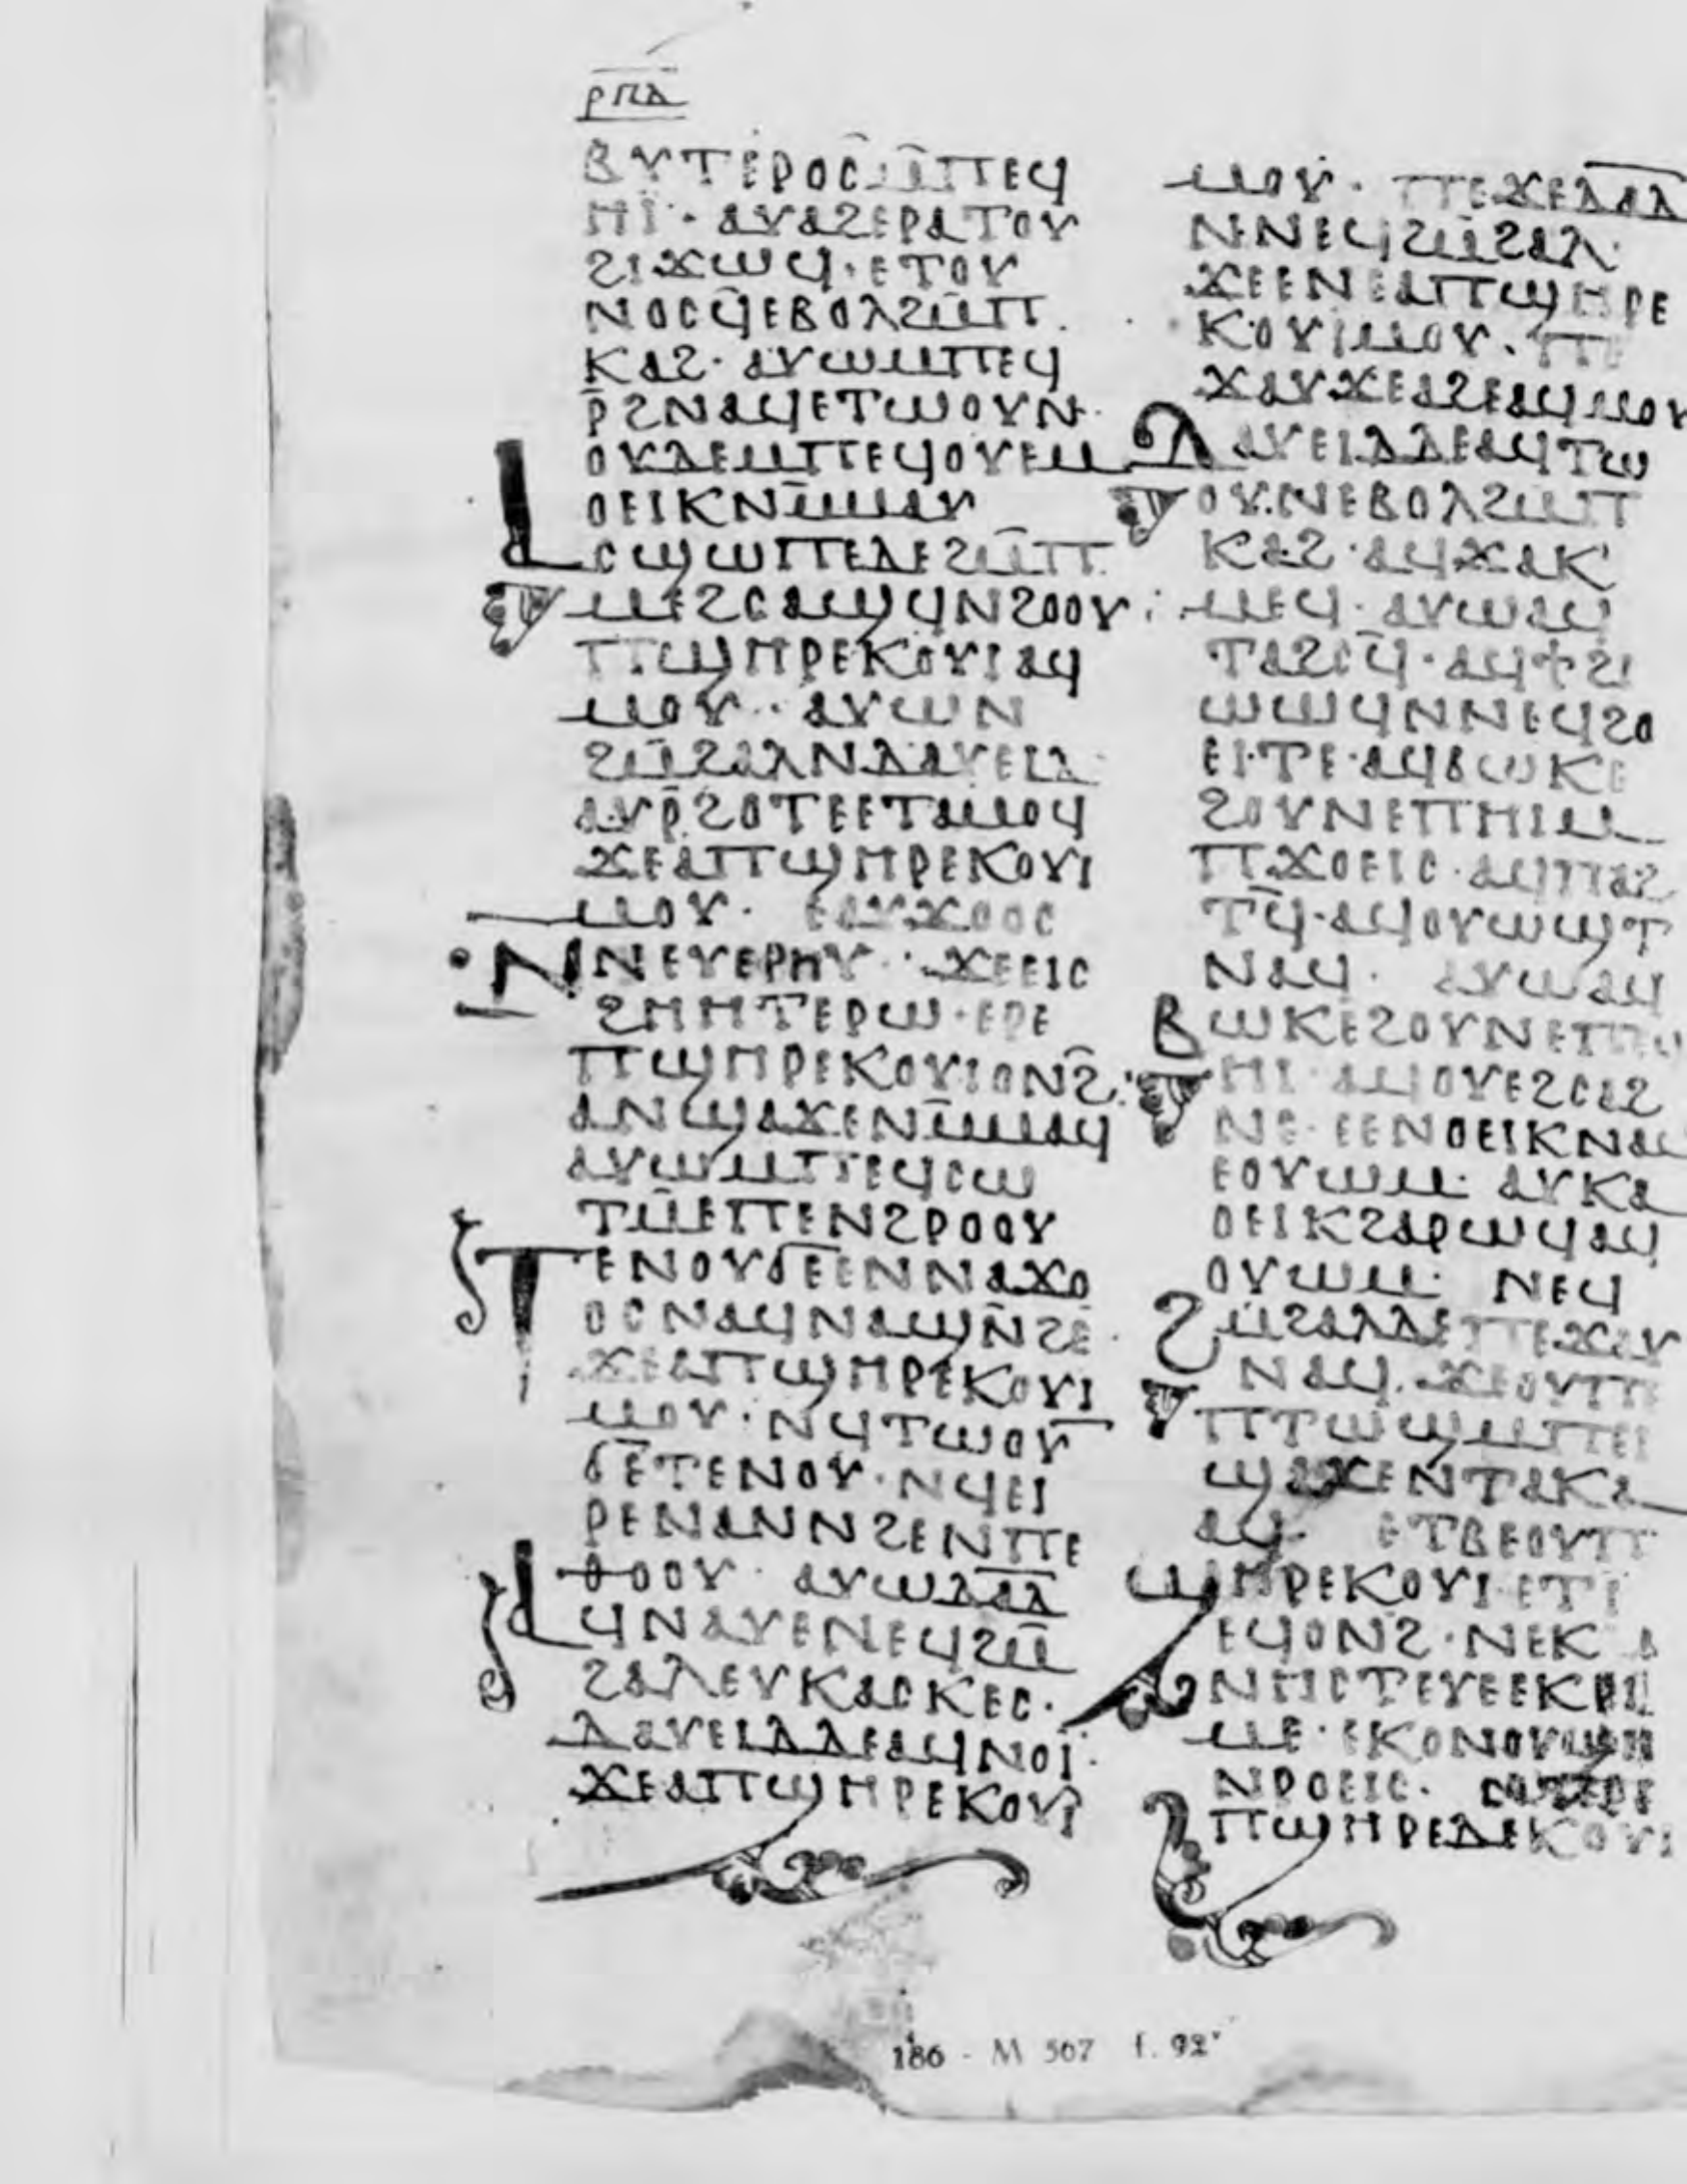 ⲣⲡⲇ
ⲃⲩⲧⲉⲣⲟⲥ ⲙ̅ⲡⲉϥ
ⲏⲓ̈· ⲁⲩⲁϩⲉⲣⲁⲧⲟⲩ
ϩⲓϫⲱϥ· ⲉⲧⲟⲩ
ⲛⲟⲥϥ̅ⲉⲃⲟⲗϩⲙ̅ⲡ
ⲕⲁϩ· ⲁⲩⲱⲙⲡⲉϥ
ⲣ̅ϩⲛⲁϥⲉⲧⲱⲟⲩⲛ·
ⲟⲩⲇⲉⲙⲡⲉϥⲟⲩⲉⲙ
ⲟⲉⲓⲕⲛⲙ̅ⲙⲁⲩ
ⲁⲥϣⲱⲡⲉⲇⲉϩⲙ̅ⲡ
ⲙⲉϩⲥⲁϣϥⲛϩⲟⲟⲩ·
ⲡϣⲏⲣⲉⲕⲟⲩⲓⲁϥ
ⲙⲟⲩ· ⲁⲩⲱⲛ
ϩⲙ̅ϩⲁⲗⲛⲇⲁⲩⲉⲓⲇ
ⲁⲩⲣ̅ϩⲟⲧⲉⲉⲧⲁⲙⲟϥ
ϫⲉⲁⲡϣⲏⲣⲉⲕⲟⲩⲓ
ⲙⲟⲩ· ⲉⲁⲩϫⲟⲟⲥ
ⲛⲛⲉⲩⲉⲣⲏⲩ· ϫⲉⲉⲓⲥ
ϩⲏⲏⲧⲉⲣⲱ· ⲉⲣⲉ
ⲡϣⲏⲣⲉⲕⲟⲩⲓⲟⲛϩ̅·
ⲁⲛϣⲁϫⲉⲛⲙ̅ⲙⲁϥ
ⲁⲩⲱⲙⲡⲉϥⲥⲱ
ⲧⲙ̅ⲉⲡⲉⲛϩⲣⲟⲟⲩ
ⲧⲉⲛⲟⲩϭⲉⲉⲛⲛⲁϫⲟ
ⲟⲥⲛⲁϥⲛⲁϣⲛ̅ϩⲉ·
ϫⲉⲁⲡϣⲏⲣⲉⲕⲟⲩⲓ
ⲙⲟⲩ· ⲛϥⲧⲱⲟⲩ̅
ϭⲉⲧⲉⲛⲟⲩ· ⲛϥⲉⲓ
ⲣⲉⲛⲁⲛⲛϩⲉⲛⲡⲉ
ⲑⲟⲟⲩ· ⲁⲩⲱⲇⲁ̅ⲇ̅
ⲁϥⲛⲁⲩⲉⲛⲉϥϩⲙ̅
ϩⲁⲗⲉⲩⲕⲁⲥⲕⲉⲥ·
ⲇⲁⲩⲉⲓⲇⲇⲉⲁϥⲛⲟⲓ̈·
ϫⲉⲁⲡϣⲏⲣⲉⲕⲟⲩⲓ
ⲙⲟⲩ· ⲡⲉϫⲉⲇⲁ̅ⲇ̅
ⲛⲛⲉϥϩⲙ̅ϩⲁⲗ·
ϫⲉⲉⲛⲉⲁⲡϣⲏⲣⲉ
ⲕⲟⲩⲓⲙⲟⲩ· ⲡⲉ
ϫⲁⲩϫⲉⲁϩⲉⲁϥⲙⲟⲩ
ⲇⲁⲩⲉⲓⲇⲇⲉⲁϥⲧⲱ
ⲟⲩⲛⲉⲃⲟⲗϩⲙ̅ⲡ
ⲕⲁϩ· ⲁϥϫⲁⲕ
ⲙⲉϥ· ⲁⲩⲱⲁϥ
ⲧⲁϩⲥϥ̅· ⲁϥϯϩⲓ
ⲱⲱϥⲛⲛⲉϥϩⲟ
ⲉⲓⲧⲉ· ⲁϥⲃⲱⲕⲉ
ϩⲟⲩⲛⲉⲡⲏⲓⲙ
ⲡϫⲟⲉⲓⲥ· ⲁϥⲡⲁϩ
ⲧϥ̅· ⲁϥⲟⲩⲱϣⲧ
ⲛⲁϥ· ⲁⲩⲱⲁϥ
ⲃⲱⲕⲉϩⲟⲩⲛⲉⲡⲉϥ
ⲏⲓ· ⲁϥⲟⲩⲉϩⲥⲁϩ
ⲛⲉ· ⲉⲉⲛⲟⲉⲓⲕⲛⲁϥ
ⲉⲟⲩⲱⲙ· ⲁⲩⲕⲁ
ⲟⲉⲓⲕϩⲁⲣⲱϥⲁϥ
ⲟⲩⲱⲙ· ⲛⲉϥ
ϩⲙϩⲁⲗⲇⲉⲡⲉϫⲁⲩ
ⲛⲁϥ· ϫⲉⲟⲩⲡⲉ
ⲡⲧⲱϣⲙⲡⲉⲓ
ϣⲁϫⲉⲛⲧⲁⲕⲁ
ⲁϥ· ⲉⲧⲃⲉⲟⲩⲡ
ϣⲏⲣⲉⲕⲟⲩⲓ· ⲉⲧⲓ
ⲉϥⲟⲛϩ· ⲛⲉⲕ
ⲛⲏⲥⲧⲉⲩⲉⲉⲕⲣⲓ
ⲙⲉ· ⲉⲕⲟⲛⲟⲩϣⲏ
ⲛⲣⲟⲉⲓⲥ·
ⲡϣⲏⲣⲉⲇⲉⲕⲟⲩⲓ
186 - M 567 f. 92ᵛ